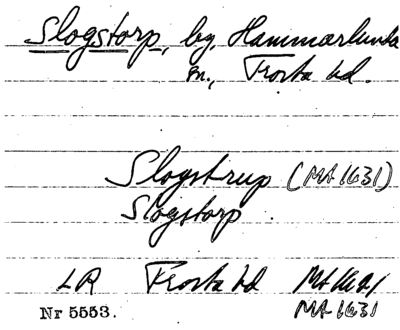 Slogstorp, by, Hammarlunda
sn., Frosta hd.
Slogstrup (MA 1631)
Slogstorp.
LR Frosta hd MA 1621
Nr 5553. MA 1631